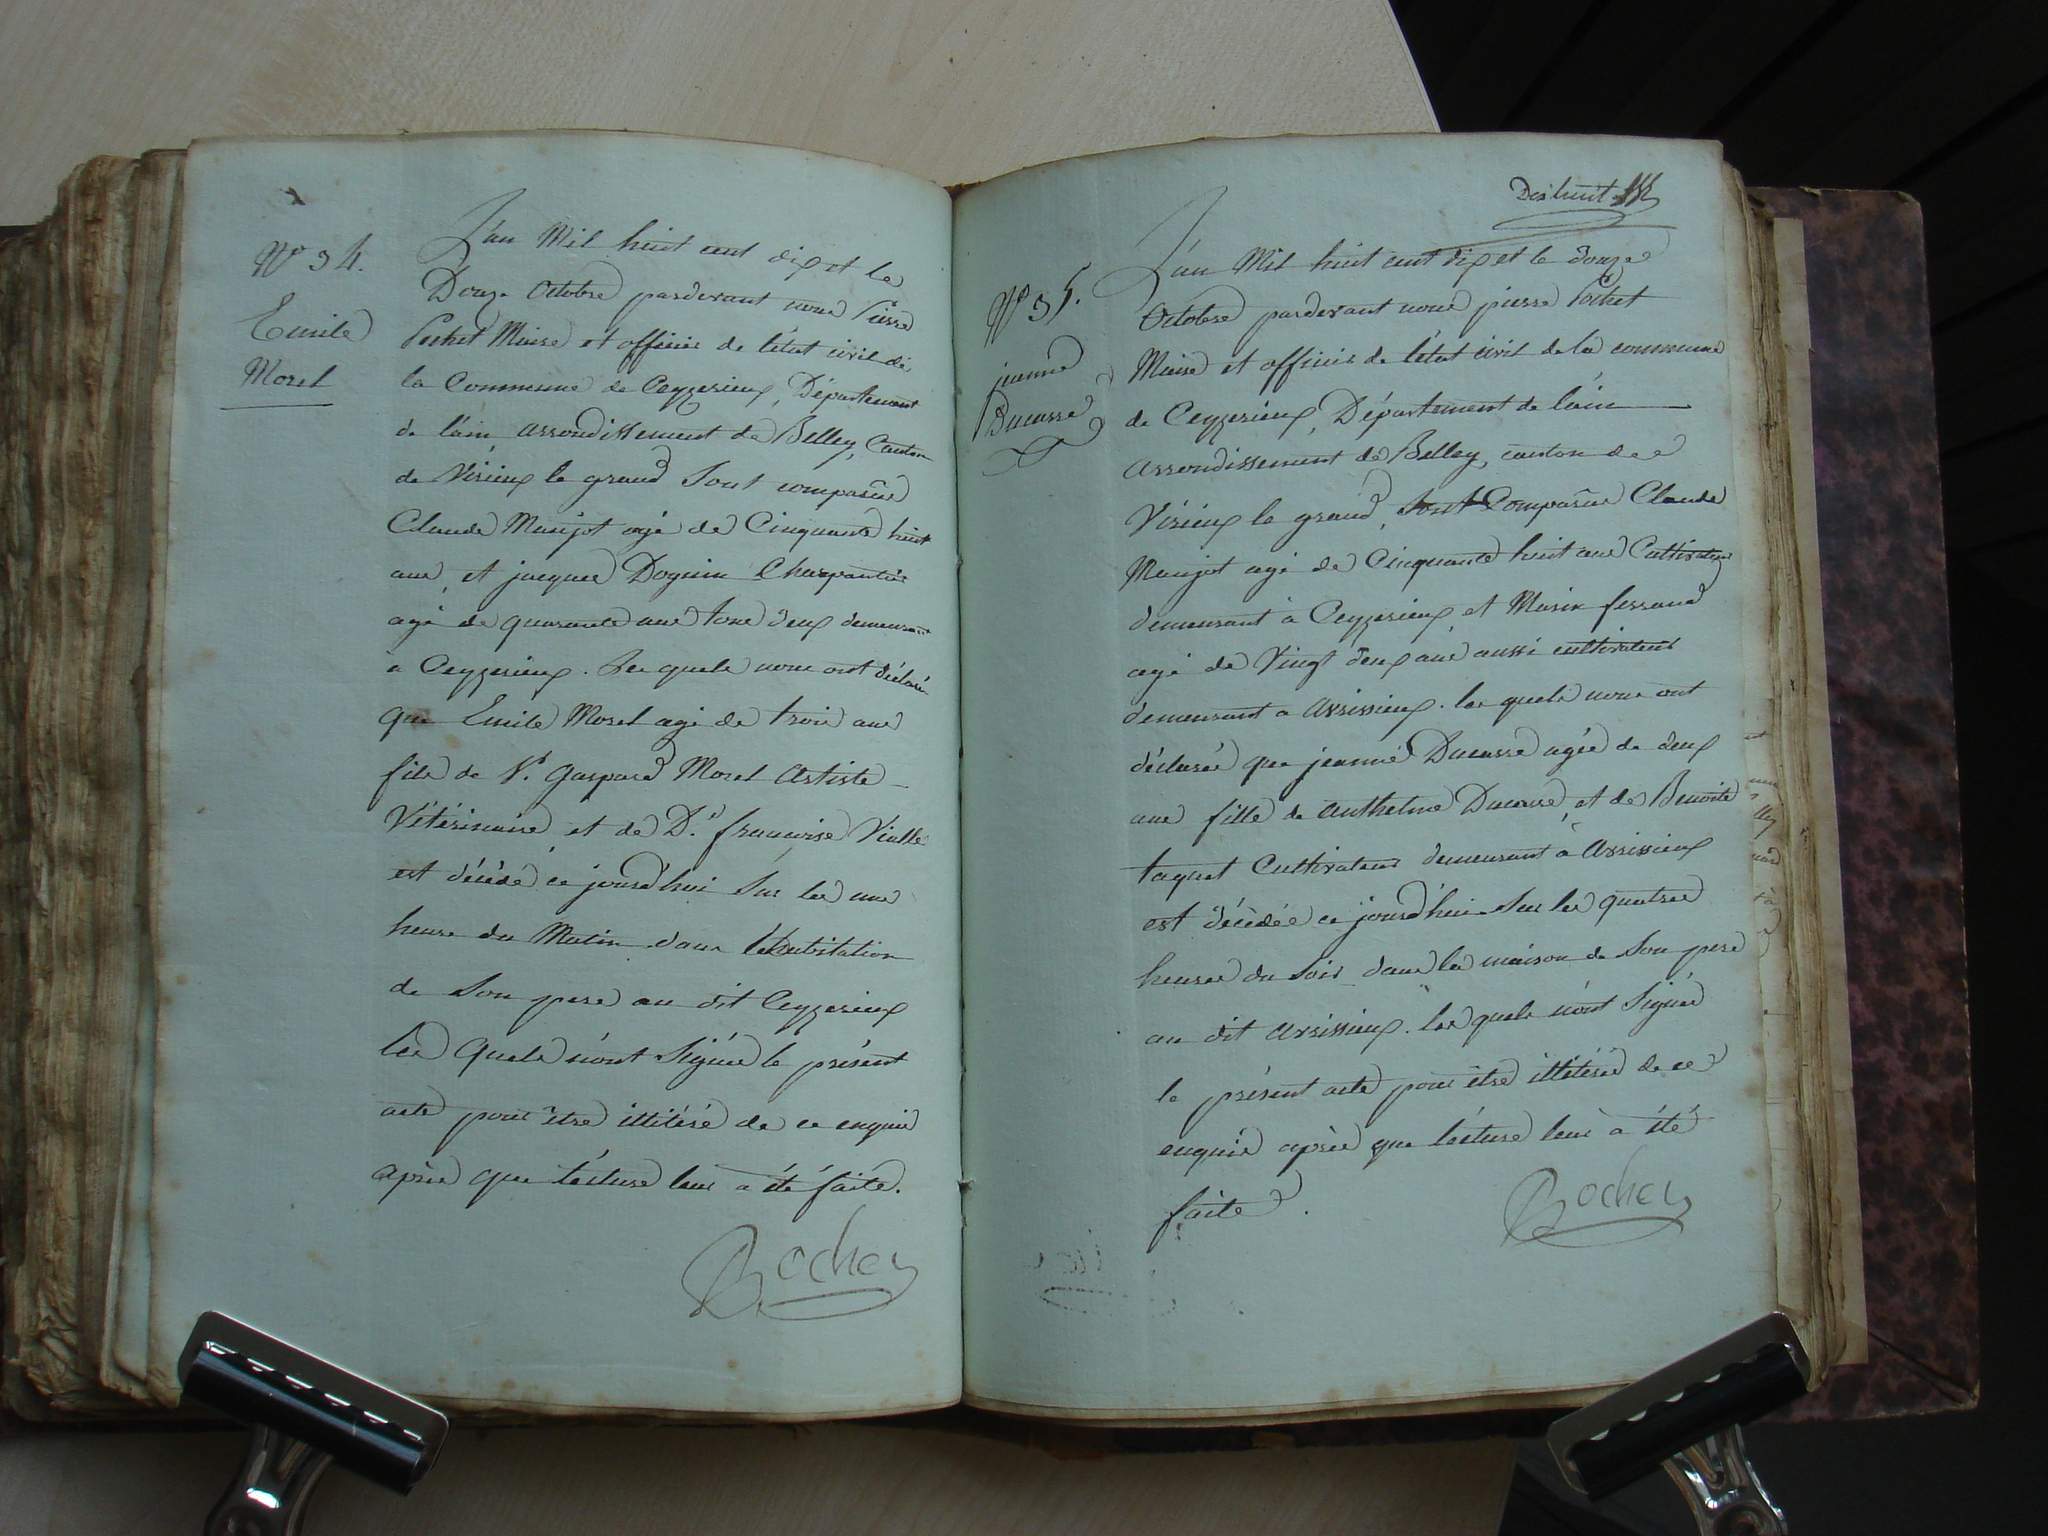 N° 34.
Emile
Morel
L'an Mil huit cent dix et le
Douze Octobre pardevant nous Pierre
Pochet Maire et officier de l'état civil de
la Commune de Ceyzerieux, Département
de l'ain, arrondissement de Belley, Canton
de Virieux le grand Sont comparus
Claude Marijot agé de Cinquante huit
ans, et jacques Doguin Charpantier
agé de quarante ans tous deux demeurant
a Ceyzerieux. Les quels nous ont déclaré
que Emile Morel agé de trois ans
fils de Sr. Gaspard Morel Artiste
Vétérinaire, et de De. francoise Vialle
est décédé ce jourd'hui Sur les une
heure du Matin dans l'habitation
de Son pere au dit Ceyzerieux
les Quels n'ont Signés le présent
acte pour être illitéré de ce enquis
après que lécture leur a été faite.
Pochet
Dix huit
N° 35.
jeanne
Ducarre
L'an Mil huit cent dix et le douze
Octobre pardevant nous pierre Pochet
Maire et officier de l'état civil de la commune
de Ceyzerieux, Département de l'ain
arrondissement de Belley, canton de
Virieux le grand, Sont Comparus Claude
Marijot agé de Cinquante huit ans Cultivateur
demeurant à Ceyzerieux et Marin ferrand
agé de Vingt deux ans aussi cultivateur
demeurant a avrissieux. les quels nous ont
déclarés que jeanne Ducarre agée de deux
ans fille de anthelme Ducarre, et de Benoite
taquet Cultivateurs demeurant à avrissieux
est décédée ce jourd'hui Sur les quatres
heures du Soir dans la maison de Son pere
au dit avrissieux. les quels n'ont Signés
le présent acte pour être illitérés de ce
enquis après que lécture leur à été
faite.
Pochet